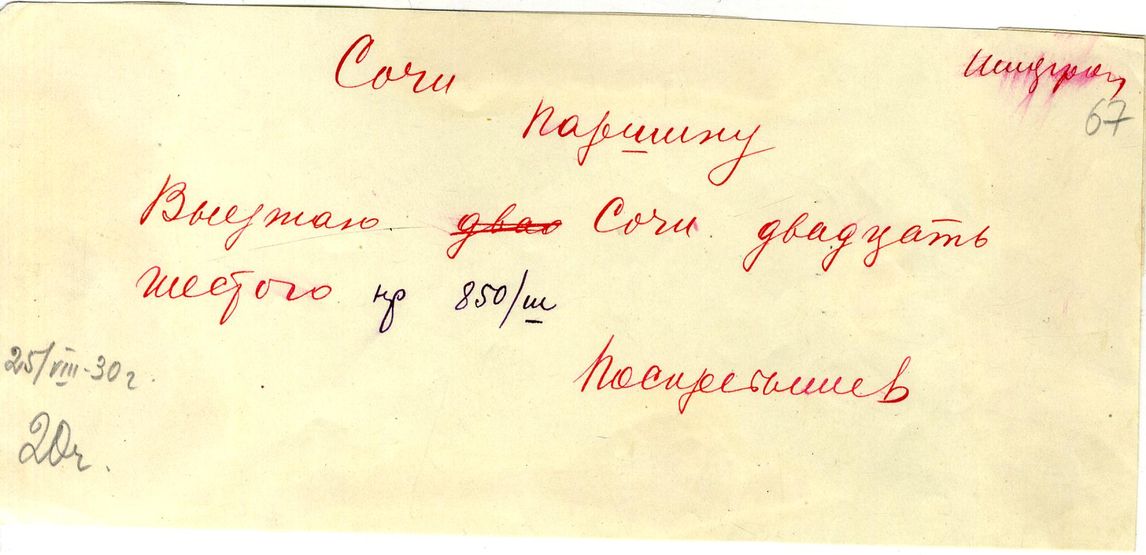 Сочи
Шифром
67
Паршину
Выезжаю двао Сочи двадцать
шестого нр 850/ш
Поскребышев
25/VIII-30 г.
20ч.